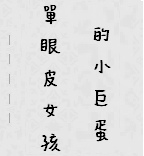 單眼皮女孩
的小巨蛋